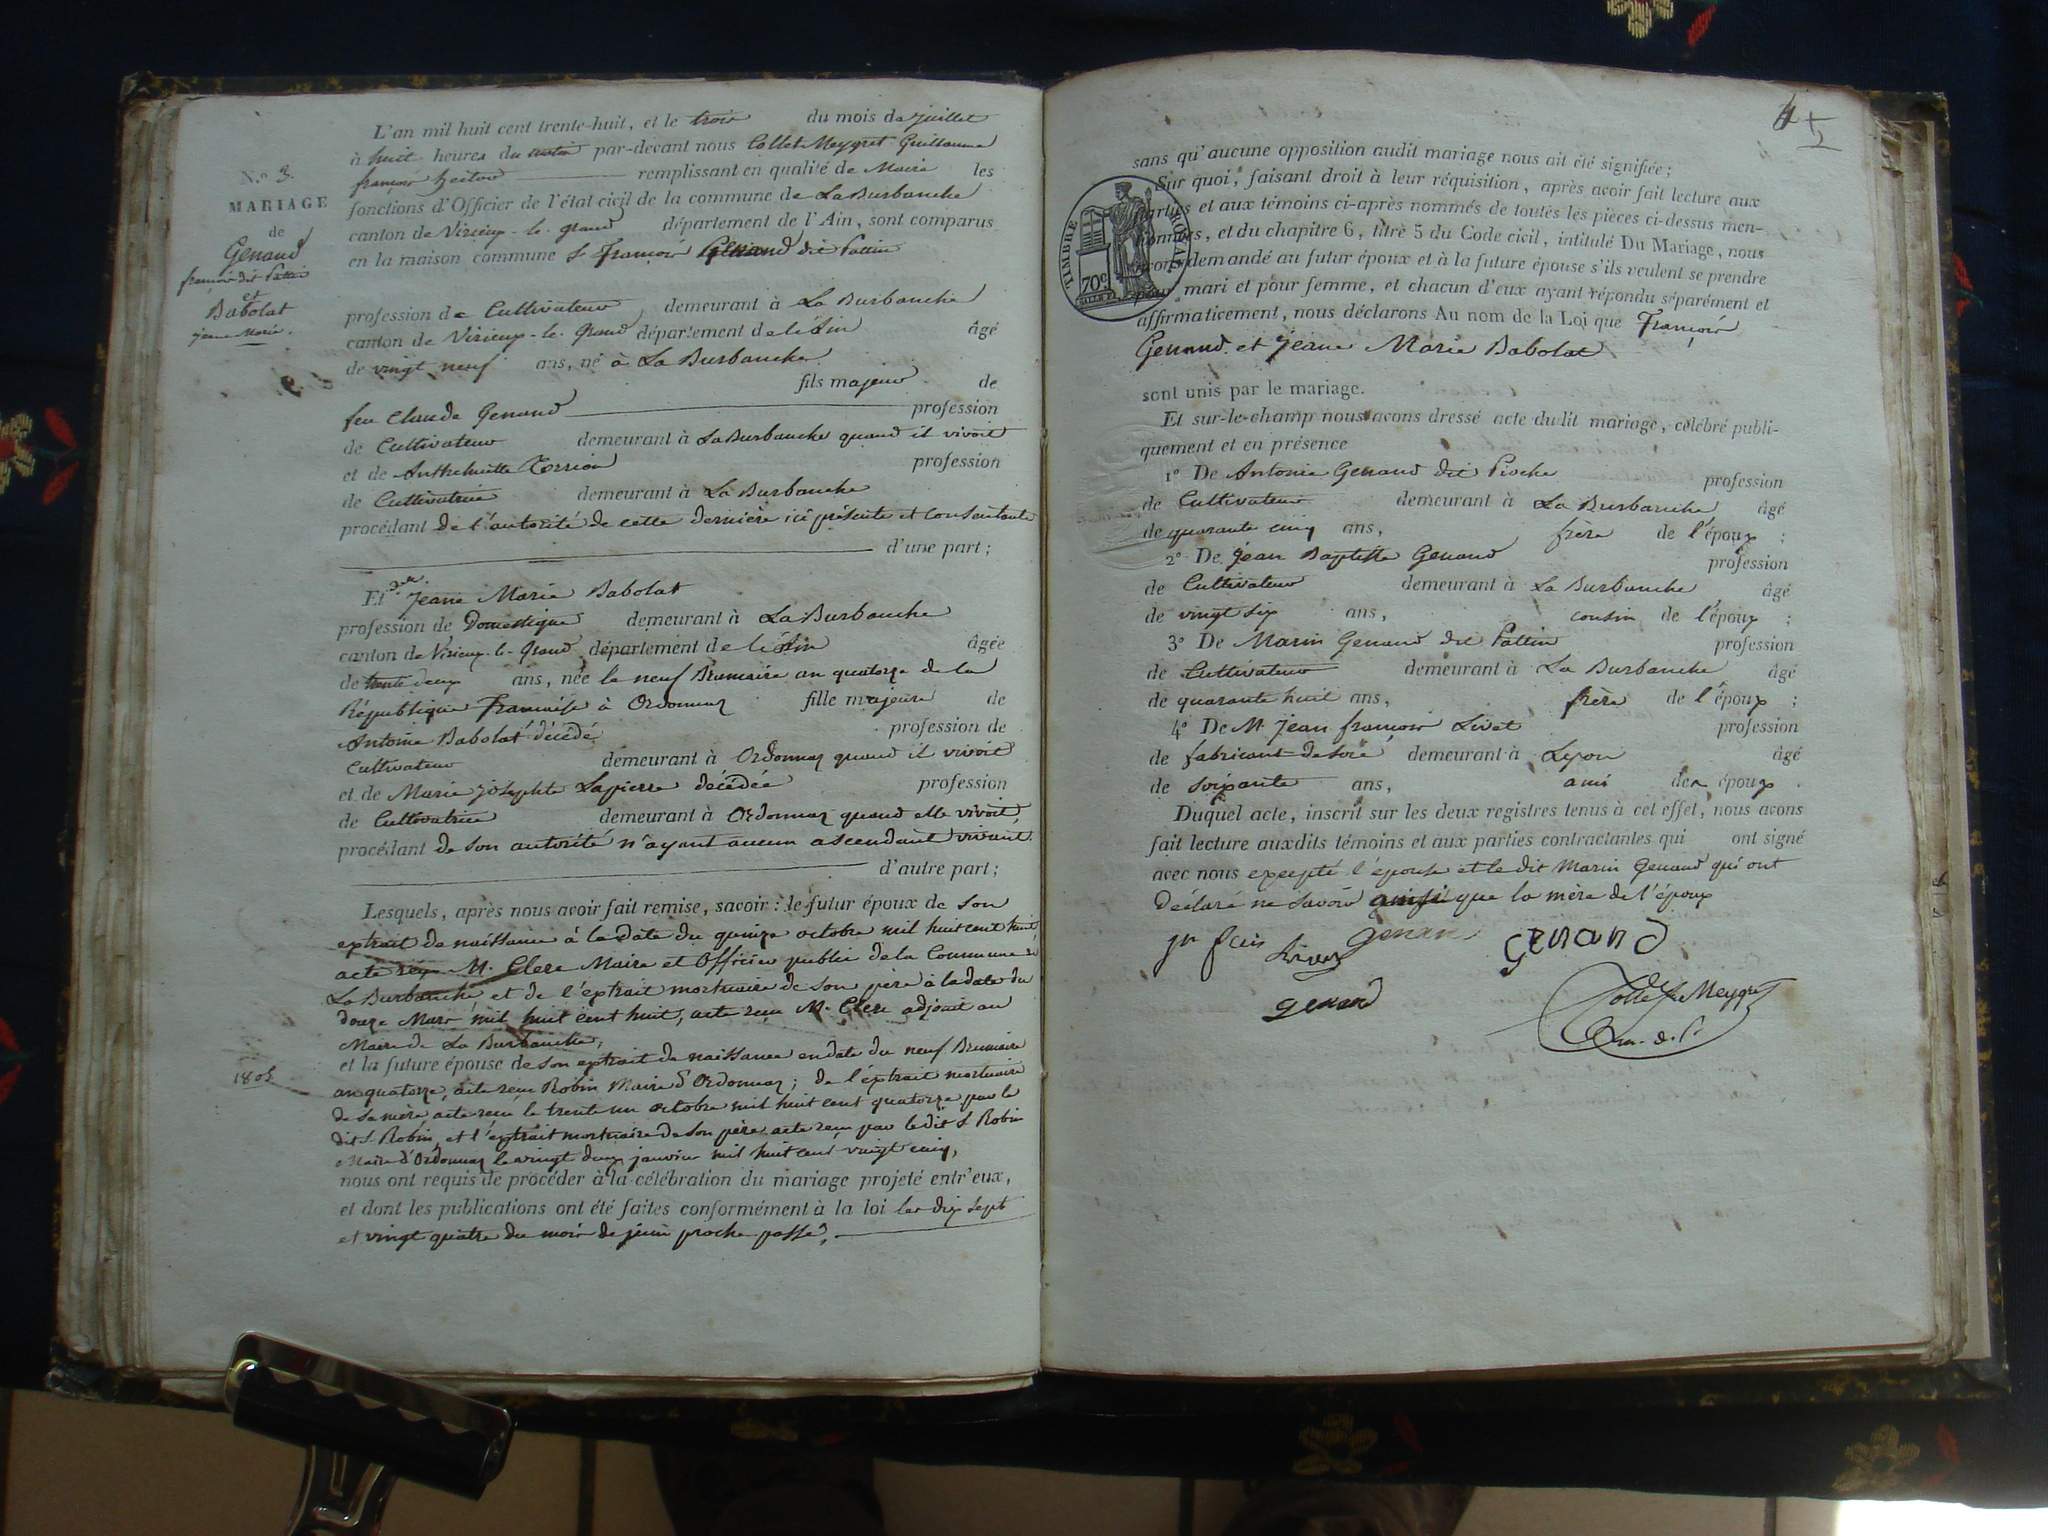 N.º 3.
MARIAGE
de
Genand
françois dit Pattin
et
Babolat
jeane Marie.
L'an mil huit cent trente-huit, et le trois du mois de juillet
à huit heures du matin par-devant nous Collet-Meygret Guillaume
françois hector remplissant en qualité de Maire les
fonctions d'Officier de l'état civil de la commune de La Burbanche
canton de Virieux-le-grand département de l'Ain, sont comparus
en la maison commune S. François Genand dit Pattin
profession de Cultivateur demeurant à La Burbanche
canton de Virieux-le-Grand département de l'Ain âgé
de vingt neuf ans, né à La Burbanche
fils majeur de
feu Claude Genand profession
de Cultivateur demeurant à La Burbanche quand il vivoit
et de Anthelmette Torrion profession
de Cultivatrice demeurant à La Burbanche
procédant de l'autorité de cette dernière ici présente et consentante
d'une part;
Et d.elle Jeane Marie Babolat
profession de Domestique demeurant à La Burbanche
canton de Virieux-le-Grand département de l'Ain âgée
de trente deux ans, née le neuf Brumaire an quatorze de la
République Française à Ordonnaz fille majeure de
Antoine Babolat décédé profession de
Cultivateur demeurant à Ordonnaz quand il vivoit
et de Marie josephte Lapierre décédée profession
de Cultivatrice demeurant à Ordonnaz quand elle vivoit,
procédant de son autorité n'ayant aucun ascendant vivant.
d'autre part;
Lesquels, après nous avoir fait remise, savoir: le futur époux de son
extrait de naissance à la date du quinze octobre mil huit cent huit
acte reçu M. Clerc Maire et Officier public de la Commune de
La Burbanche et de l'extrait mortuaire de son père à la date du
douze Mars mil huit cent huit, acte reçu M. Clerc adjoint au
Maire de La Burbanche,
et la future épouse de son extrait de naissance en date du neuf Brumaire
1805
an quatorze, acte reçu Robin Maire d'Ordonnaz; de l'extrait mortuaire
de sa mère acte reçu le trente un octobre mil huit cent quatorze par le
dit S. Robin, et l'extrait mortuaire de son père acte reçu par le dit S. Robin
Maire d'Ordonnaz le vingt deux janvier mil huit cent vingt cinq,
nous ont requis de procéder à la célébration du mariage projeté entr'eux,
et dont les publications ont été faites conformément à la loi les dix sept
et vingt quatre du mois de juin proche passé,
4
5
sans qu'aucune opposition audit mariage nous ait été signifiée;
Sur quoi, faisant droit à leur réquisition, après avoir fait lecture aux
parties et aux témoins ci-après nommés de toutes les pièces ci-dessus men-
tionnées, et du chapitre 6, titre 5 du Code civil, intitulé Du Mariage, nous
avons demandé au futur époux et à la future épouse s'ils veulent se prendre
pour mari et pour femme, et chacun d'eux ayant répondu séparément et
affirmativement, nous déclarons Au nom de la Loi que François
Genand et Jeane Marie Babolat
TIMBRE ROYAL
70c
sont unis par le mariage.
Et sur-le-champ nous avons dressé acte dudit mariage, célébré publi-
quement et en présence
1º De Antoine Genand dit Pioche profession
de Cultivateur demeurant à La Burbanche âgé
de quarante cinq ans, frère de l'époux;
2º De Jean Baptiste Genand profession
de Cultivateur demeurant à La Burbanche âgé
de vingt six ans, cousin de l'époux;
3º De Marin Genand dit Pattin profession
de Cultivateur demeurant à La Burbanche âgé
de quarante huit ans, frère de l'époux;
4º De M. jean françois Livet profession
de fabricant de soie demeurant à Lyon âgé
de soixante ans, ami des époux.
Duquel acte, inscrit sur les deux registres tenus à cet effet, nous avons
fait lecture auxdits témoins et aux parties contractantes qui ont signé
avec nous excepté l'épouse et le dit Marin Genand qui ont
déclaré ne savoir ainsi que la mère de l'époux
jn fcois Livet genand genand
genand
Collet Meygret
m. d. l.